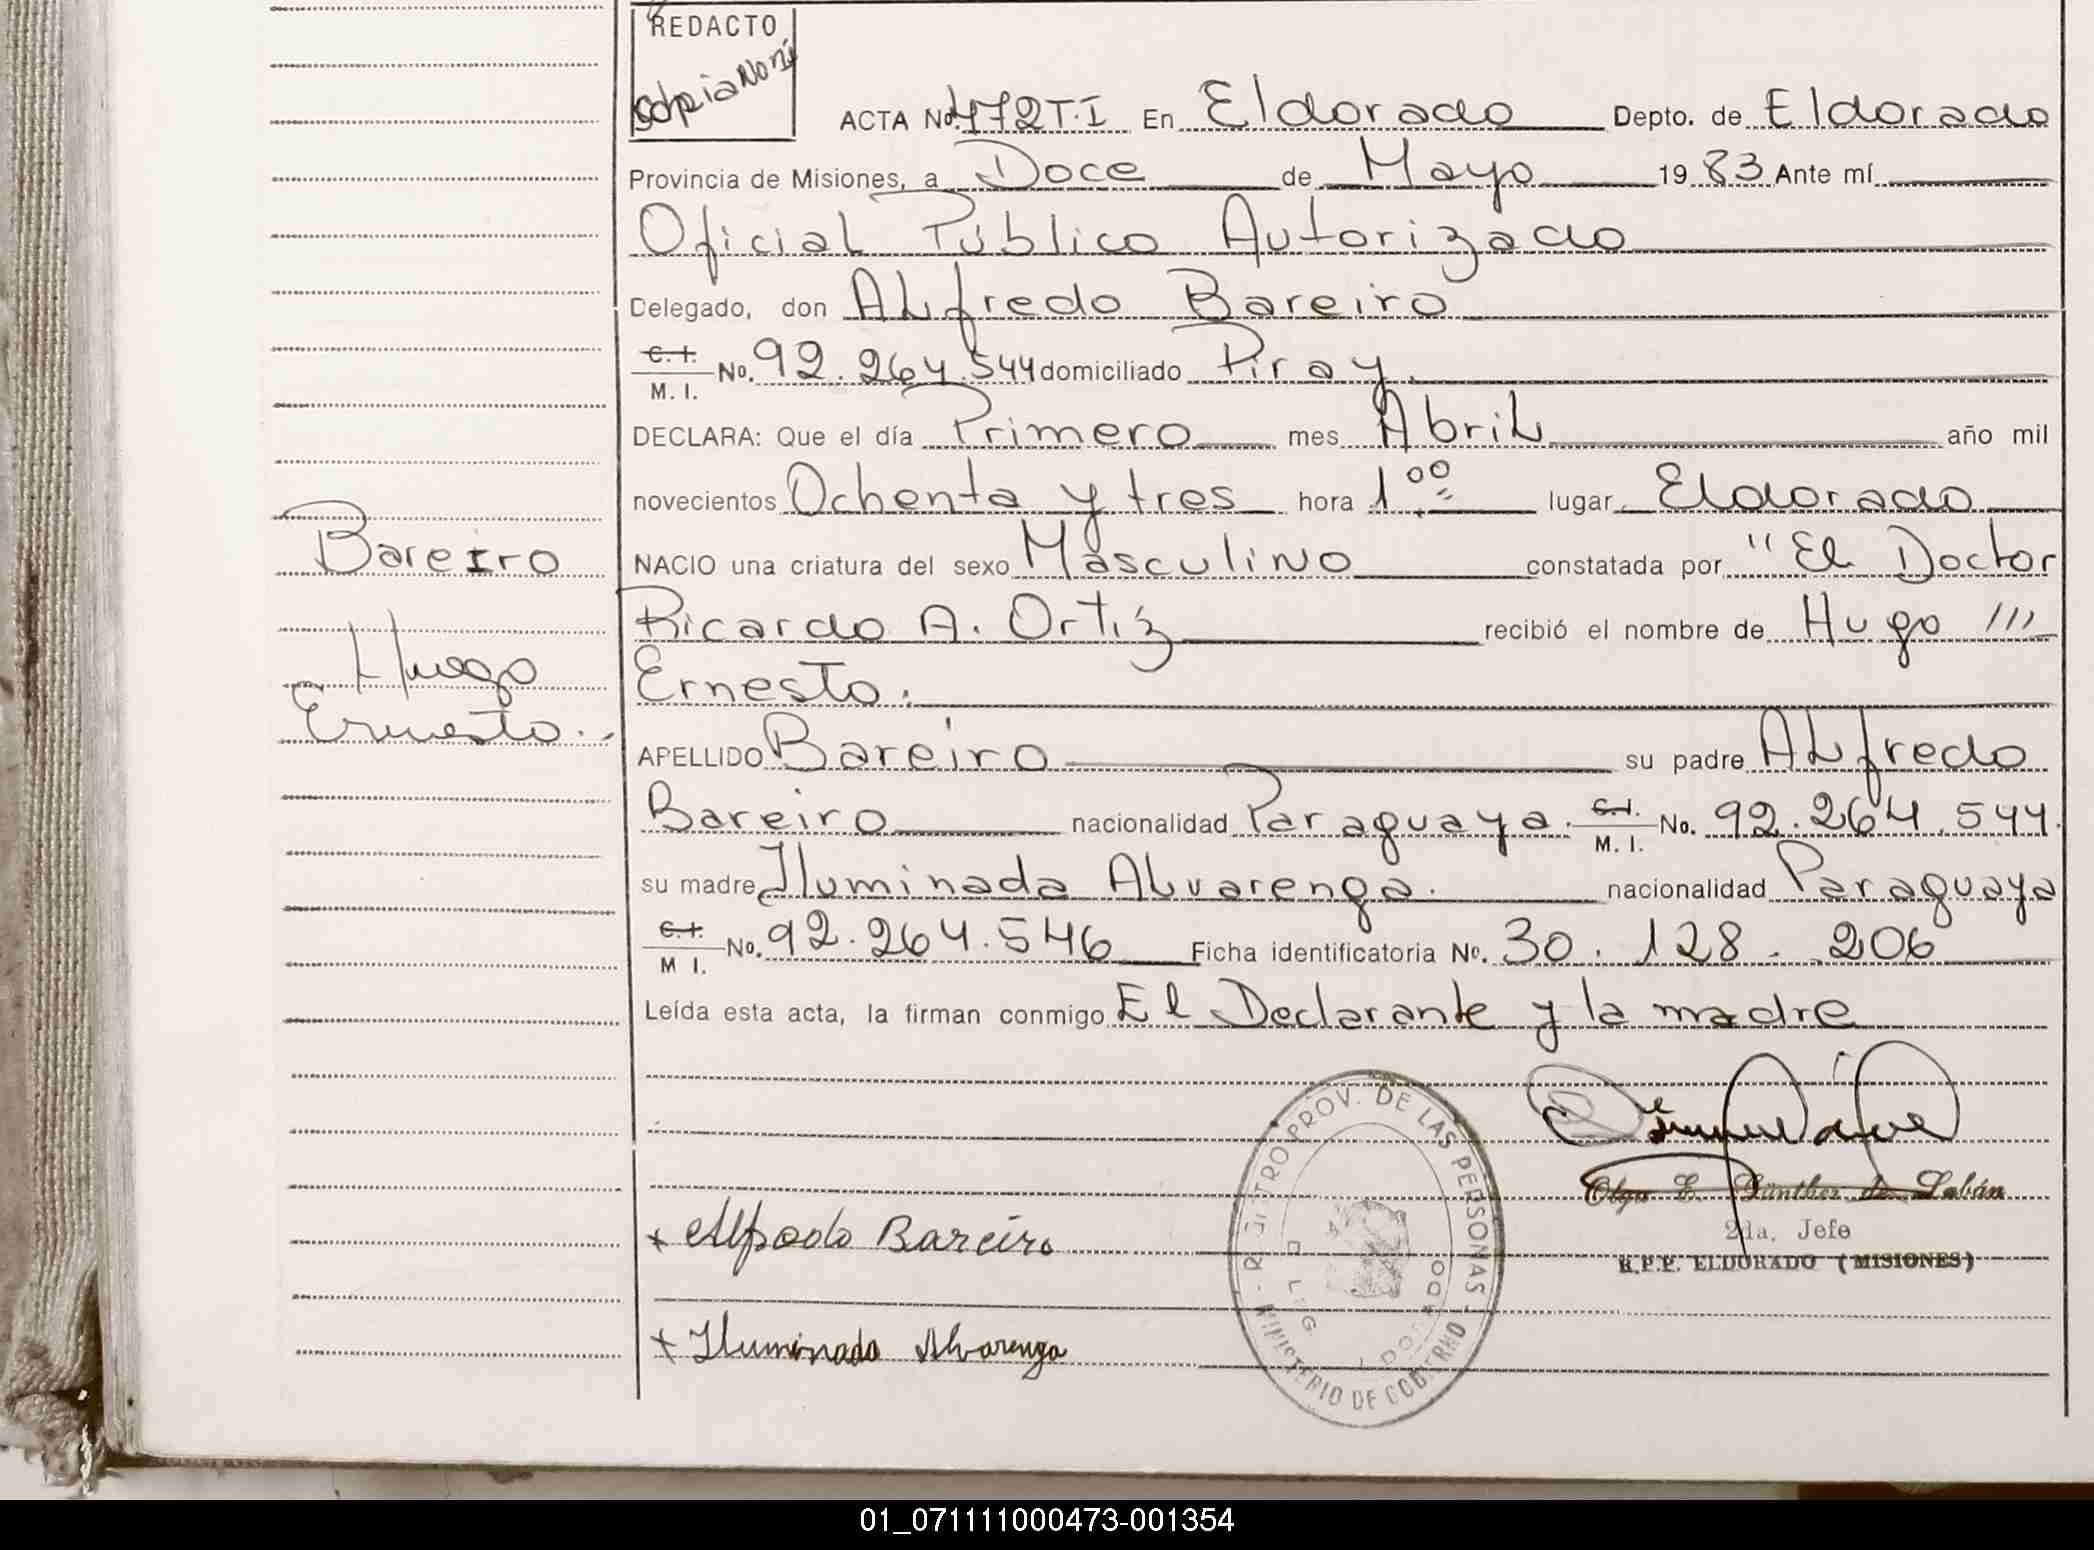 REDACTO
ACTA No. 472 T.I En Eldorado Depto. de Eldorado
Provincia de Misiones, a Doce de Mayo 1983 Ante mí
Oficial Público Autorizado
Delegado, don ALfredo Bareiro
C. I. M. I. No. 92.264.544 domiciliado Piray.
DECLARA: Que el día Primero mes Abril año mil
novecientos Ochenta y tres hora 1 00 lugar Eldorado
Bareiro
NACIO una criatura del sexo Masculino constatada por "El Doctor
Ricardo A. Ortíz recibió el nombre de Hugo ///
Hugo
Ernesto.
Ernesto.
APELLIDO Bareiro su padre ALfredo
Bareiro nacionalidad Paraguaya. C. I. M. I. No. 92.264.544.
su madre Iluminada Alvarenga. nacionalidad Paraguaya
C. I. M I. No. 92.264.546 Ficha identificatoria No. 30.128.206
Leída esta acta, la firman conmigo El Declarante y la madre
REGISTRO PROV. DE LAS PERSONAS - MINISTERIO DE GOBIERNO -
Olga E. Günther de Labán
2da. Jefe
R.P.P. ELDORADO (MISIONES)
+ Alfredo Bareiro
+ Iluminada Alvarenga
01_071111000473-001354